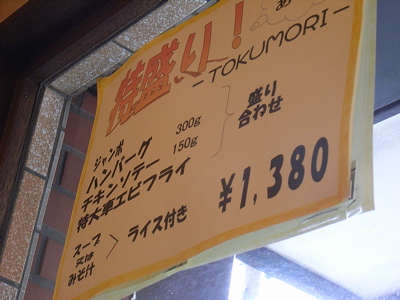 あ
特盛り!
-TOKUMORI-
ジャンボ
ハンバーグ 300g
チキンソテー 150g
特大車エビフライ
盛り
合わせ
¥1,380
スープ
又は
みそ汁
ライス付き